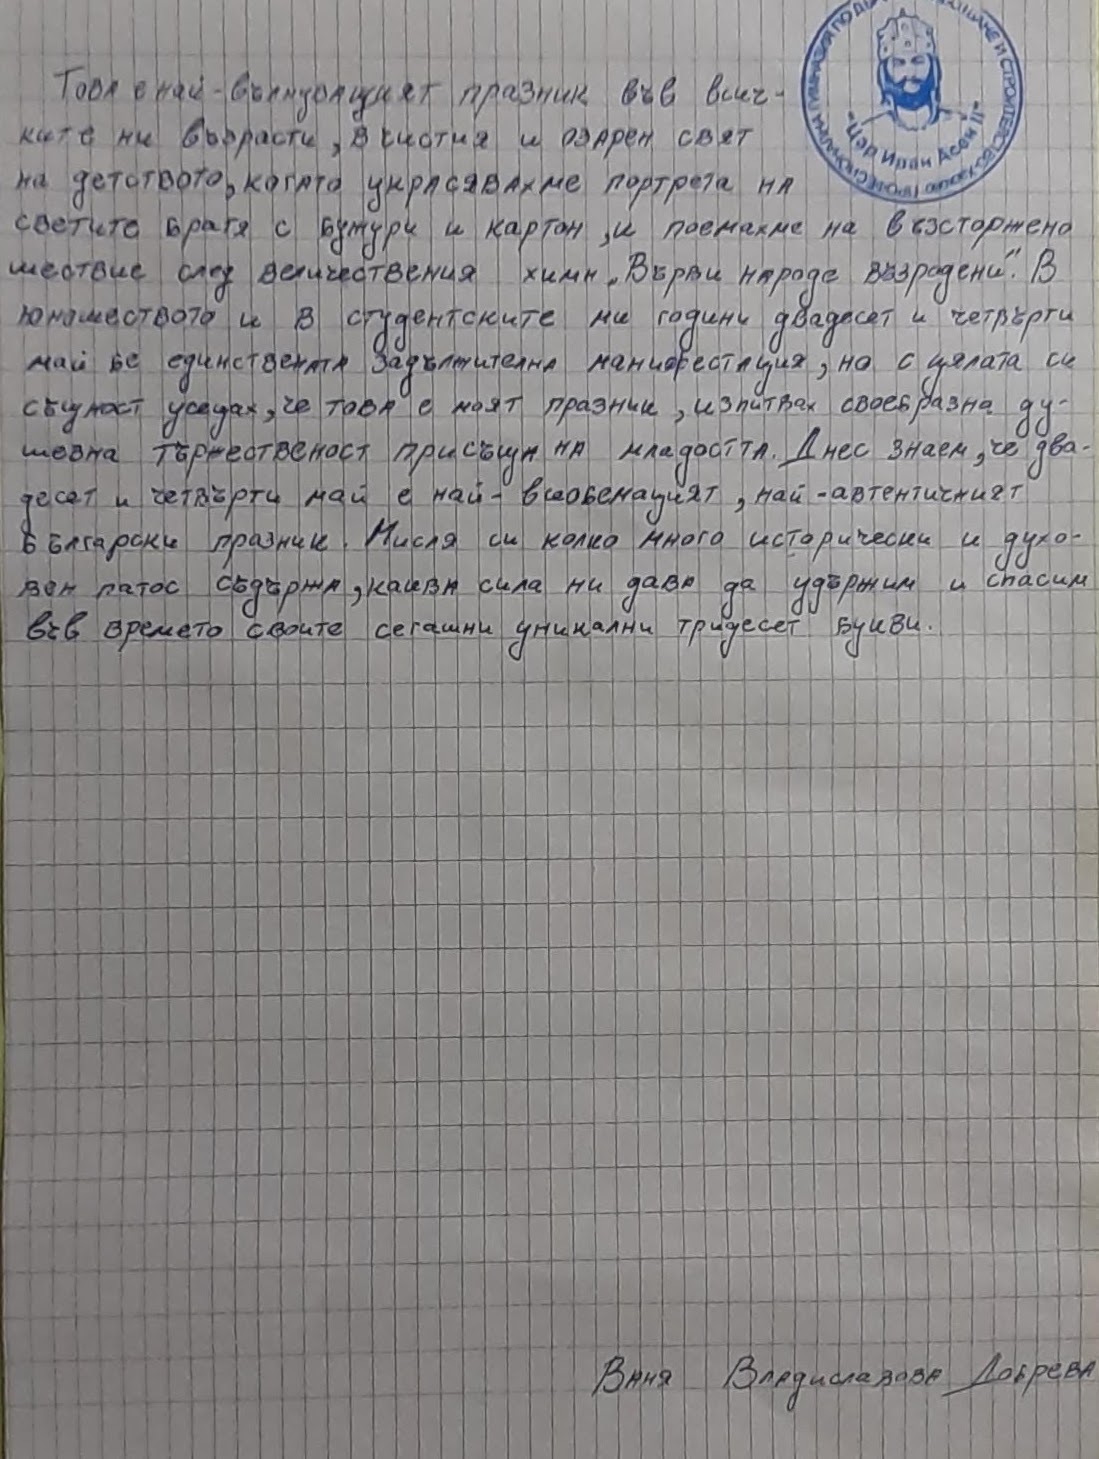 "Цар Иван Асен II"
Това е най-вълнуващият празник във всич-
ките ни възрасти, в чистия и озарен свят
на детството, когато украсявахме портрета на
светите братя с бужури и картон, и поемахме на възсторжено
шествие след величествения химн „Върви народе възродени“. В
юношеството и в студентските ми години двадесет и четвърти
май бе единствената задължителна манифестация, но с цялата си
същност усещах, че това е моят празник, изпитвах своебразна ду-
шевна тържественост присъща на младостта. Днес знаем, че два-
десет и четвърти май е най-всеобемащият, най-автентичният
български празник. Мисля си колко много исторически и духо-
вен патос съдържа, каква сила ни дава да удържим и спасим
във времето своите сегашни уникални тридесет букви.
Ваня Владиславова Добрева